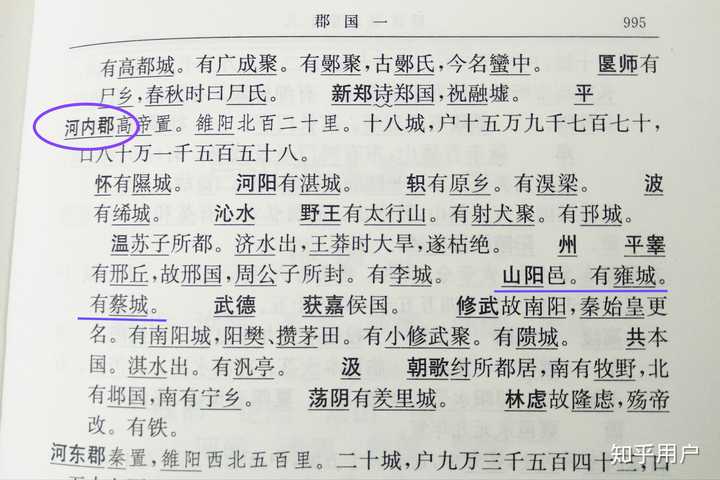 郡国一 995
有高都城。有广成聚。有鄤聚，古鄤氏，今名蠻中。 匽师有
尸乡，春秋时曰尸氏。 新郑诗郑国，祝融墟。 平
河内郡高帝置。雒阳北百二十里。十八城，户十五万九千七百七十，
口八十万一千五百五十八。
怀有隰城。 河阳有湛城。 轵有原乡。有溴梁。 波
有𫄨城。 沁水 野王有太行山。有射犬聚。有邘城。
温苏子所都。济水出，王莽时大旱，遂枯绝。 州 平睾
有邢丘，故邢国，周公子所封。有李城。 山阳邑。有雍城。
有蔡城。 武德 获嘉侯国。 修武故南阳，秦始皇更
名。有南阳城，阳樊、攒茅田。有小修武聚。有隤城。 共本
国。淇水出。有汎亭。 汲 朝歌纣所都居，南有牧野，北
有邶国，南有宁乡。 荡阴有羑里城。 林虑故隆虑，殇帝
改。有铁。
河东郡秦置，雒阳西北五百里。二十城，户九万三千五百四十三，口
知乎用户